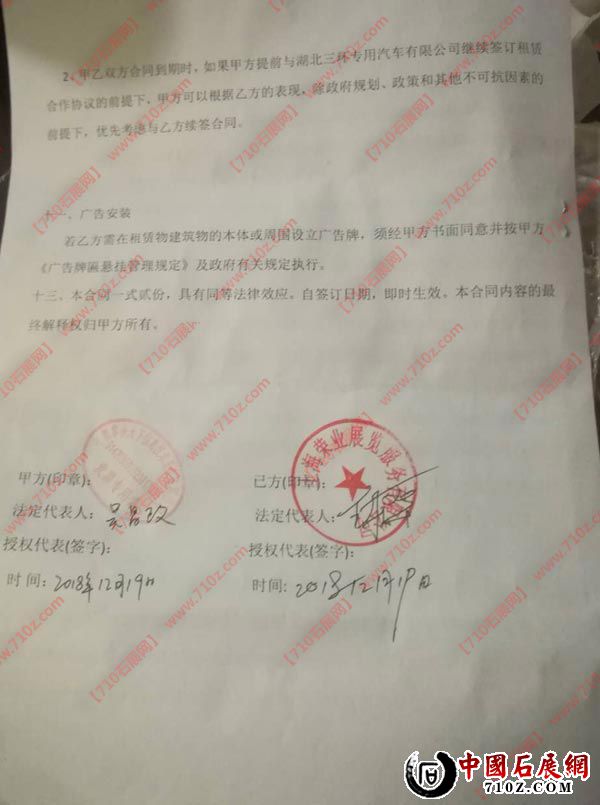 2、甲乙双方合同到期时，如果甲方提前与湖北三环专用汽车有限公司继续签订租赁
合作协议的前提下，甲方可以根据乙方的表现，除政府规划、政策和其他不可抗因素的
前提下，优先考虑与乙方续签合同。
十一、广告安装
若乙方需在租赁物建筑物的本体或周围设立广告牌，须经甲方书面同意并按甲方
《广告牌匾悬挂管理规定》及政府有关规定执行。
十三、本合同一式贰份，具有同等法律效应。自签订日期，即时生效。本合同内容的最
终解释权归甲方所有。
甲方(印章):
法定代表人:
授权代表(签字):
时间: 2018年12月19日
上海荣业展览服务
己方(印章):
法定代表人:
授权代表(签字):
时间: 2018年12月19日
【710石展网】www.710z.com
中國石展網
710Z.COM